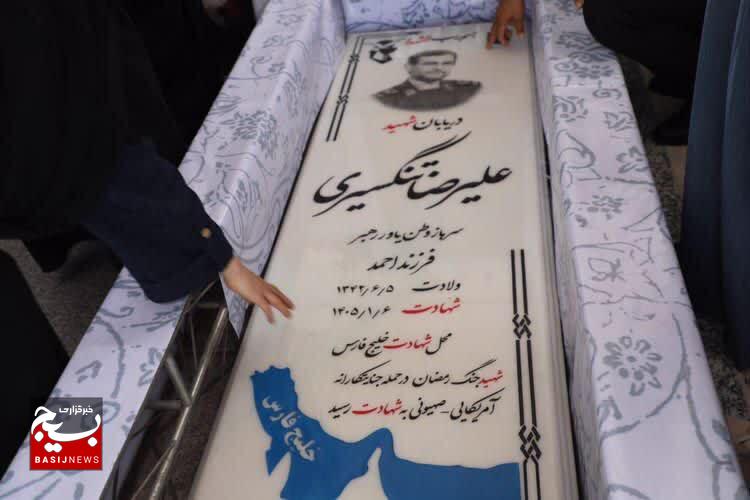 دریابان شهید
علیرضا تنگسیری
سرباز وطن یاور رهبر
فرزند احمد
ولادت ۱۳۴۲٫۶٫۵
شهادت ۱۴۰۵٫۱٫۶
محل شهادت خلیج فارس
شهید جنگ رمضان در حمله جنایتکارانه
آمریکایی-صهیونی به شهادت رسید
خلیج فارس
خبرگزاری
بسیج
BASIJNEWS